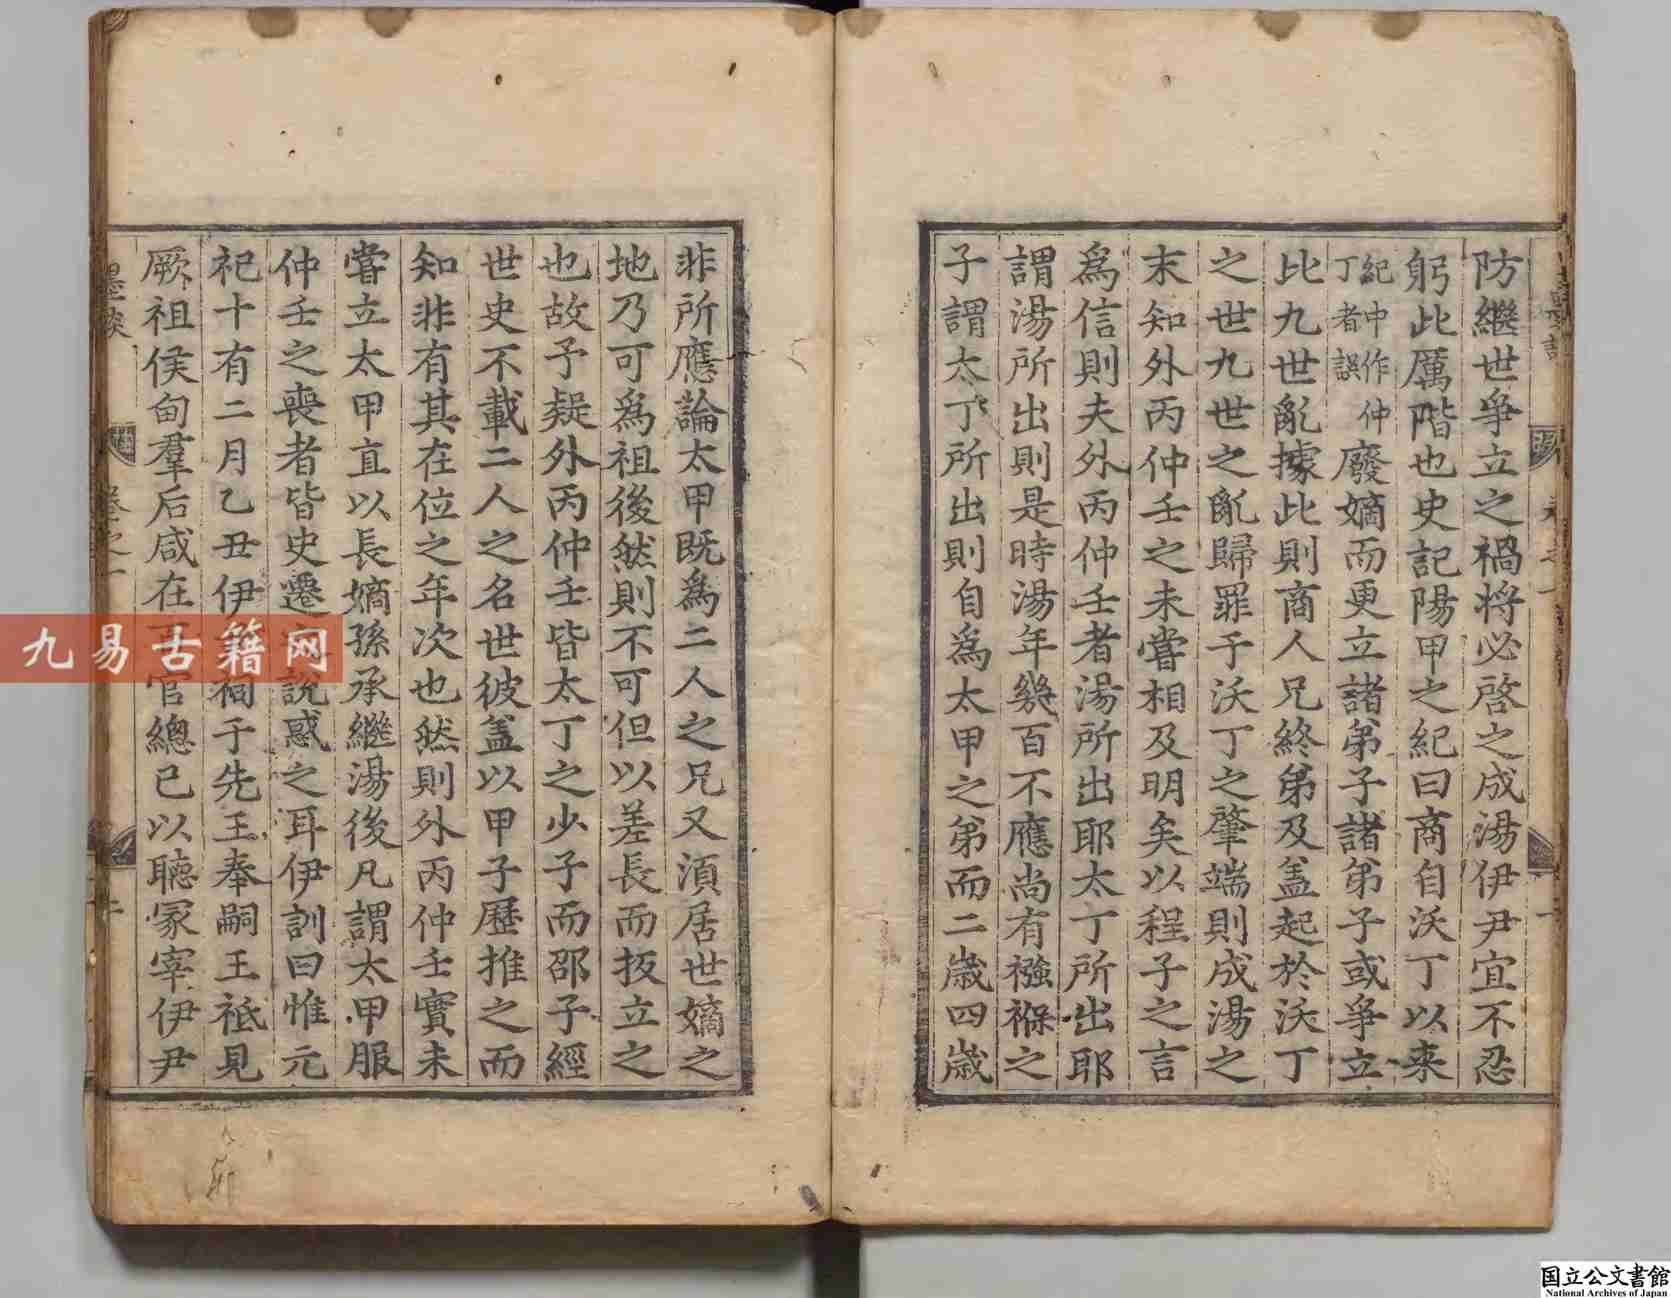 防繼世爭立之禍將必啓之成湯伊尹宜不忍
躬此厲階也史記陽甲之紀曰商自沃丁以来
紀中作仲
丁者誤
廢嫡而更立諸弟子諸弟子或爭立
比九世亂據此則商人兄終弟及盖起於沃丁
之世九世之亂歸罪于沃丁之肇端則成湯之
末知外丙仲壬之未嘗相及明矣以程子之言
爲信則夫外丙仲壬者湯所出耶太丁所出耶
謂湯所出則是時湯年幾百不應尚有襁褓之
子謂太丁所出則自爲太甲之弟而二歳四歳
非所應論太甲既爲二人之兄又湏居世嫡之
地乃可爲祖後然則不可但以差長而扳立之
也故予疑外丙仲壬皆太丁之少子而邵子經
世史不載二人之名世彼盖以甲子歷推之而
知非有其在位之年次也然則外丙仲壬實未
嘗立太甲直以長嫡孫承繼湯後凡謂太甲服
仲壬之喪者皆史遷之說惑之耳伊訓曰惟元
祀十有二月乙丑伊祠于先王奉嗣王祗見
厥祖侯甸羣后咸在百官緫已以聴冢宰伊尹
墨談
卷之一
九易古籍网
国立公文書館
National Archives of Japan